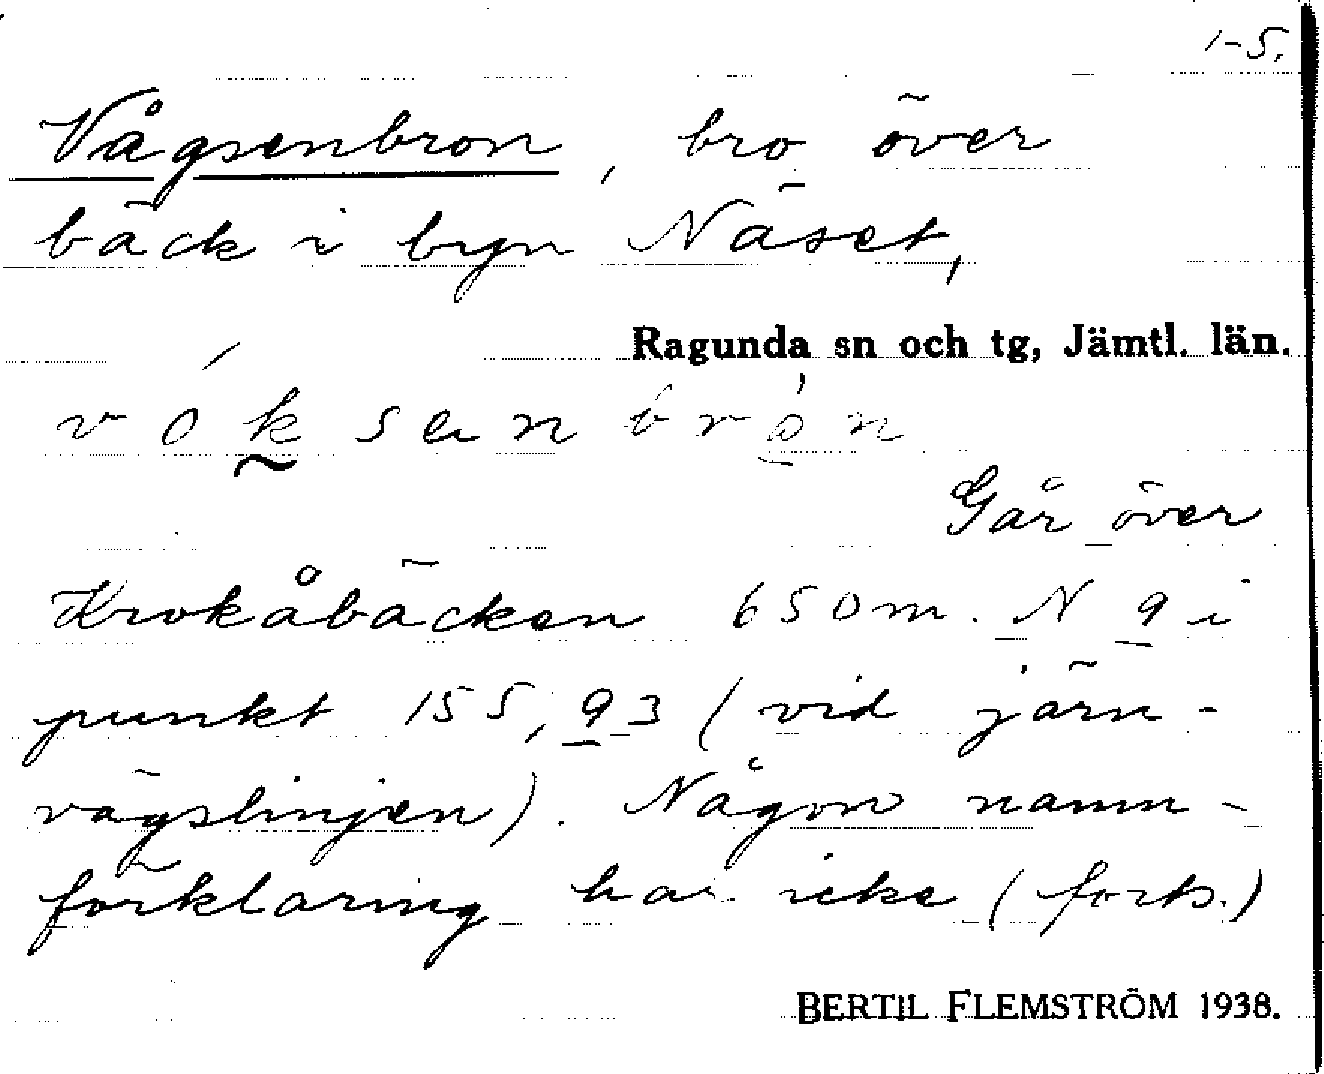 1-5.
Vågsenbron, bro över
bäck i byn Näset,
Ragunda sn och tg, Jämtl. län.
Går över
Krokåbäcken 650 m. N 9 i
punkt 155,93 (vid järn-
vägslinjen). Någon namn-
förklaring har icke (forts.)
BERTIL FLEMSTRÖM 1938.